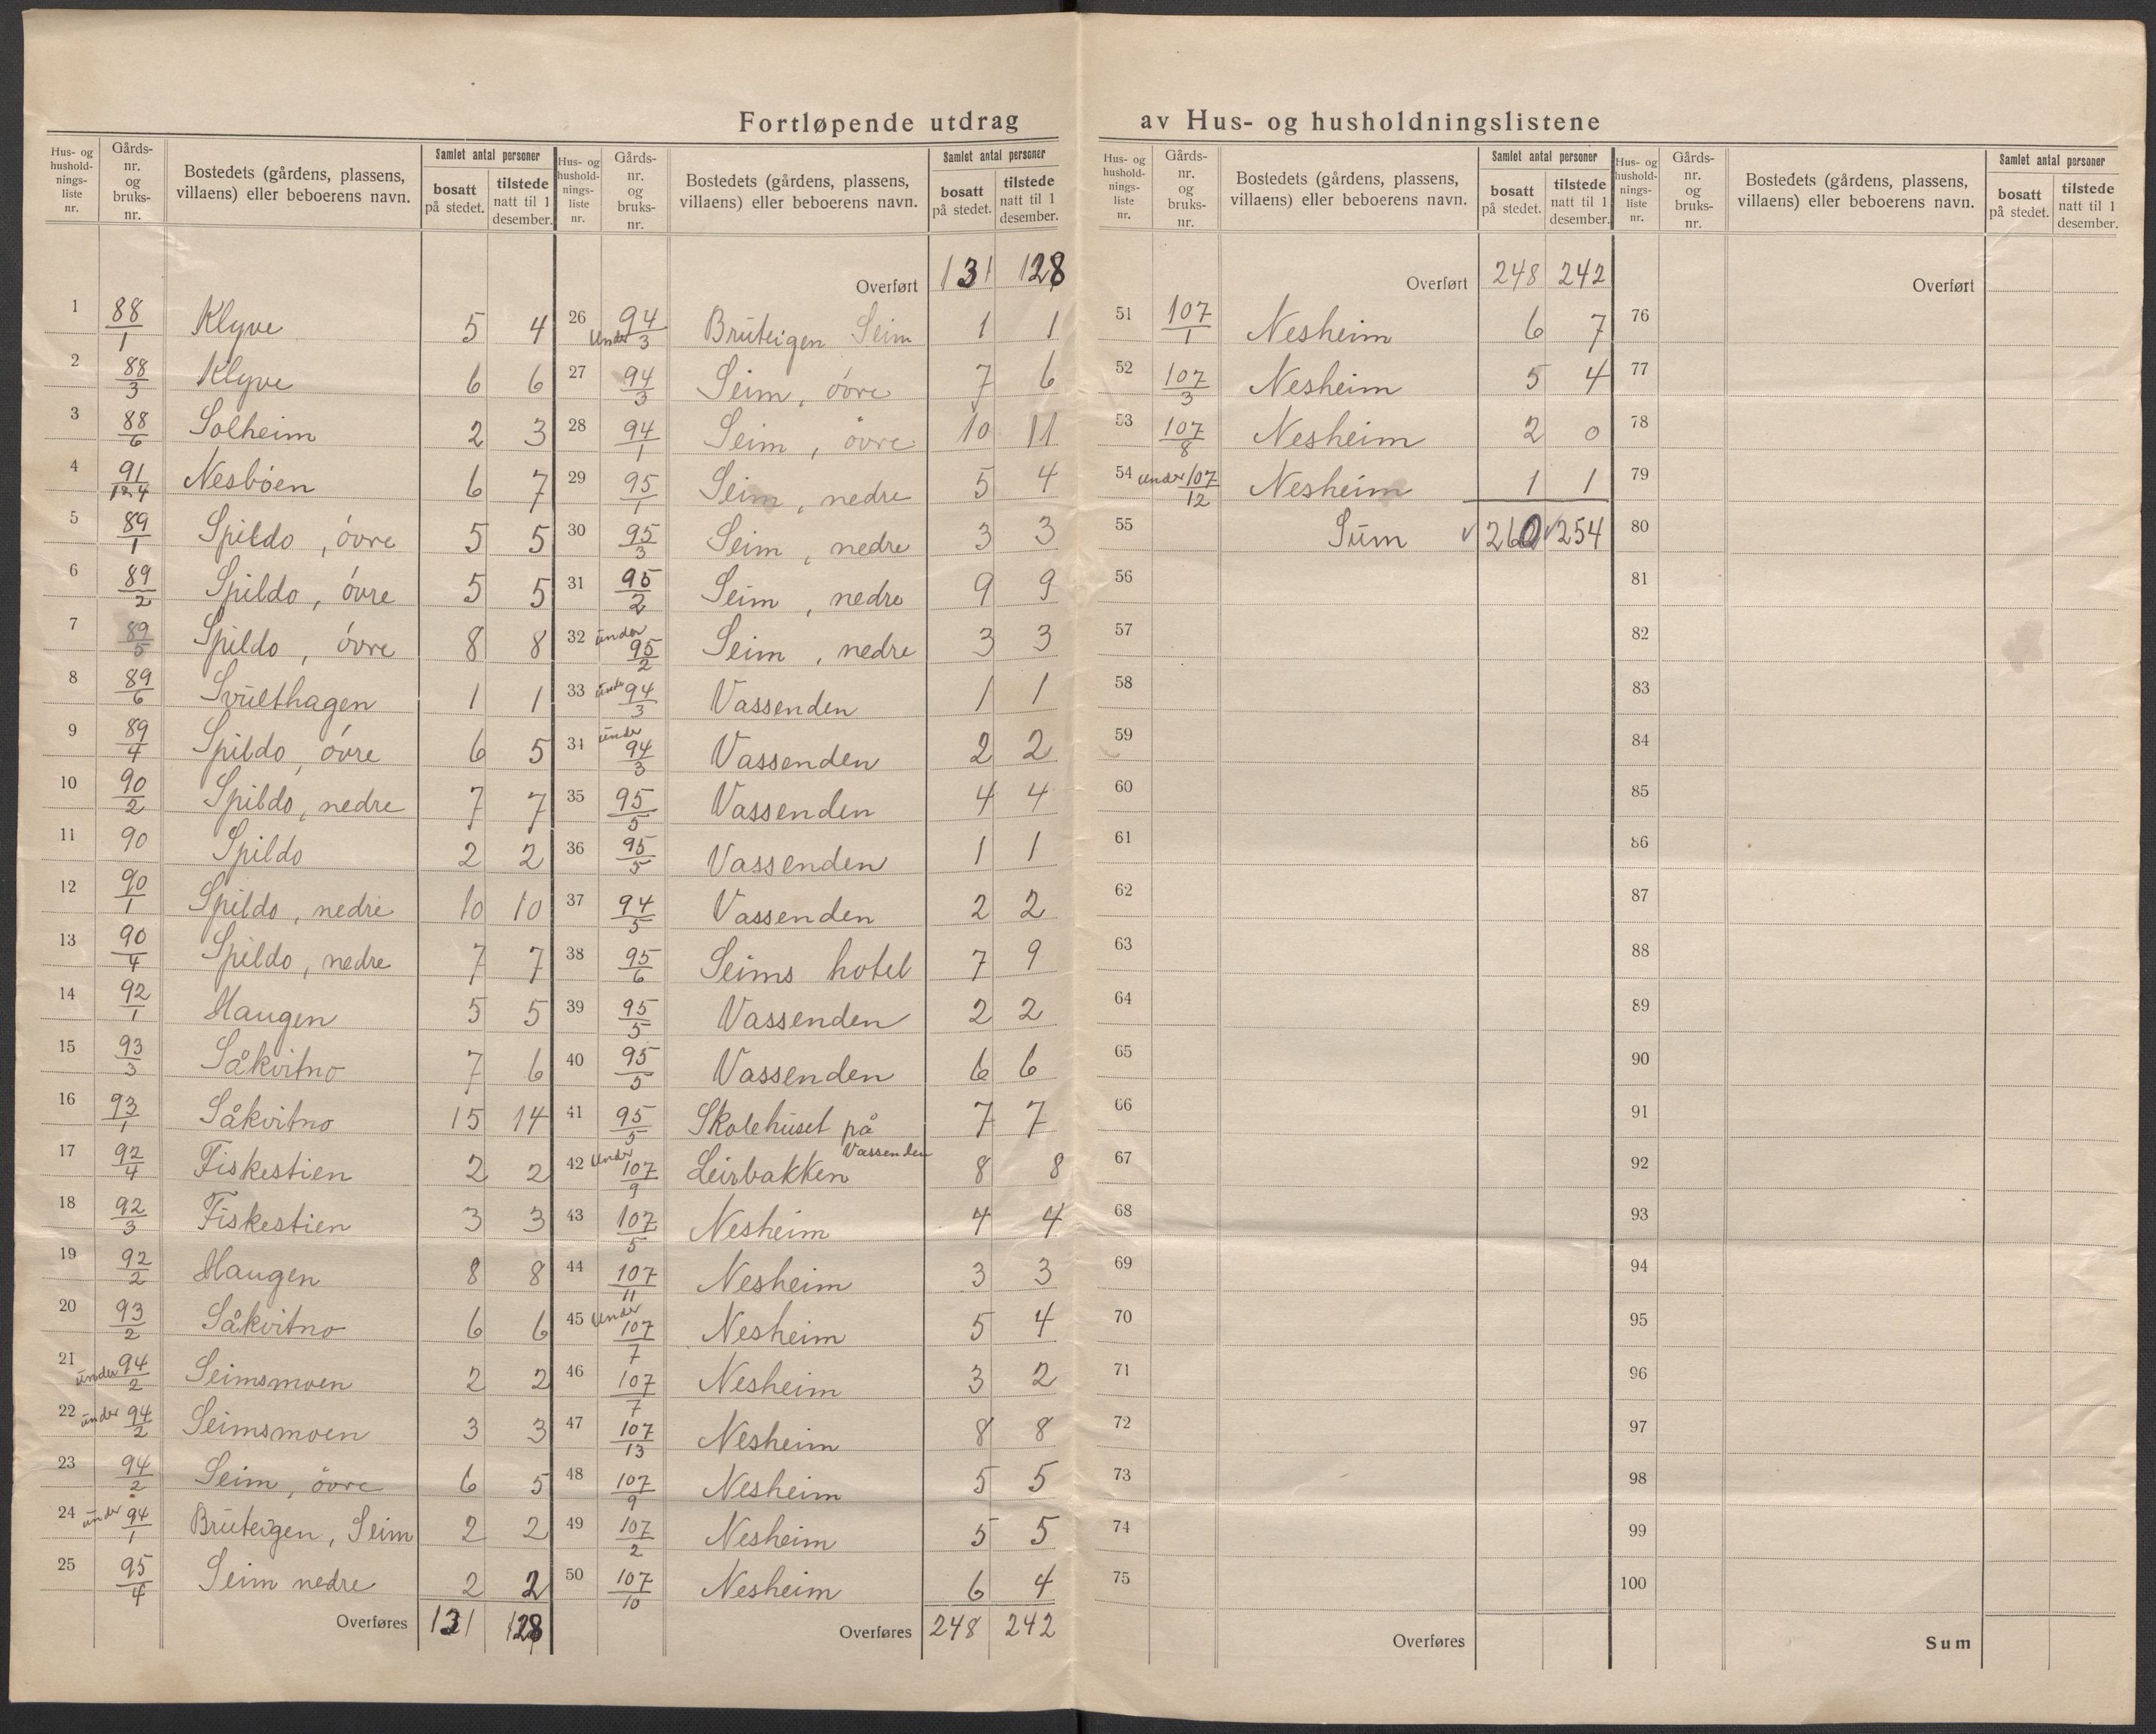 Fortløpende utdrag av Hus- og husholdningslistene
Hus- og husholdningsliste nr. | Gårdsnr. og bruksnr. | Bostedets (gårdens, plassens, villaens) eller beboerens navn. | Samlet antal personer bosatt på stedet. | tilstede natt til 1 desember.
1 88/1 Klyve 5 4
2 88/3 Klyve 6 6
3 88/6 Solheim 2 3
4 91/1 2 4 Nesbøen 6 7
5 89/1 Spildo, óvre 5 5
6 89/2 Spildo, óvre 5 5
7 89/5 Spildo, óvre 8 8
8 89/6 Svulthagen 1 1
9 89/4 Spildo, óvre 6 5
10 90/2 Spildo, nedre 7 7
11 90 Spildo 2 2
12 90/1 Spildo, nedre 10 10
13 90/4 Spildo, nedre 7 7
14 92/1 Haugen 5 5
15 93/3 Såkvitno 7 6
16 93/1 Såkvitno 15 14
17 92/4 Fiskestien 2 2
18 92/3 Fiskestien 3 3
19 92/2 Haugen 8 8
20 93/2 Såkvitno 6 6
21 under 94/2 Seimsmoen 2 2
22 under 94/2 Seimsmoen 3 3
23 94/2 Seim, övre 6 5
24 under 94/1 Bruteigen, Seim 2 2
25 95/4 Seim nedre 2 2
Overføres 131 128
Hus- og husholdningsliste nr. | Gårdsnr. og bruksnr. | Bostedets (gårdens, plassens, villaens) eller beboerens navn. | Samlet antal personer bosatt på stedet. | tilstede natt til 1 desember.
Overført 131 128
26 Under 94/3 Bruteigen Seim 1 1
27 94/3 Seim, óvre 7 6
28 94/1 Seim, övre 10 11
29 95/1 Seim, nedre 5 4
30 95/3 Seim, nedre 3 3
31 95/2 Seim, nedre 9 9
32 under 95/2 Seim, nedre 3 3
33 unde 94/3 Vassenden 1 1
34 under 94/3 Vassenden 2 2
35 95/5 Vassenden 4 4
36 95/5 Vassenden 1 1
37 94/5 Vassenden 2 2
38 95/6 Seims hotel 7 9
39 95/5 Vassenden 2 2
40 95/5 Vassenden 6 6
41 95/5 Skolehuset på Vassenden 7 7
42 Under 107/9 Leirbakken 8 8
43 107/5 Nesheim 4 4
44 107/11 Nesheim 3 3
45 Under 107/7 Nesheim 5 4
46 107/7 Nesheim 3 2
47 107/13 Nesheim 8 8
48 107/9 Nesheim 5 5
49 107/2 Nesheim 5 5
50 107/10 Nesheim 6 4
Overføres 248 242
Hus- og husholdningsliste nr. | Gårdsnr. og bruksnr. | Bostedets (gårdens, plassens, villaens) eller beboerens navn. | Samlet antal personer bosatt på stedet. | tilstede natt til 1 desember.
Overført 248 242
51 107/1 Nesheim 6 7
52 107/3 Nesheim 5 4
53 107/8 Nesheim 2 0
54 under 107/12 Nesheim 1 1
55 Sum √260 √254
56
57
58
59
60
61
62
63
64
65
66
67
68
69
70
71
72
73
74
75
Overføres
Hus- og husholdningsliste nr. | Gårdsnr. og bruksnr. | Bostedets (gårdens, plassens, villaens) eller beboerens navn. | Samlet antal personer bosatt på stedet. | tilstede natt til 1 desember.
Overført
76
77
78
79
80
81
82
83
84
85
86
87
88
89
90
91
92
93
94
95
96
97
98
99
100
Sum